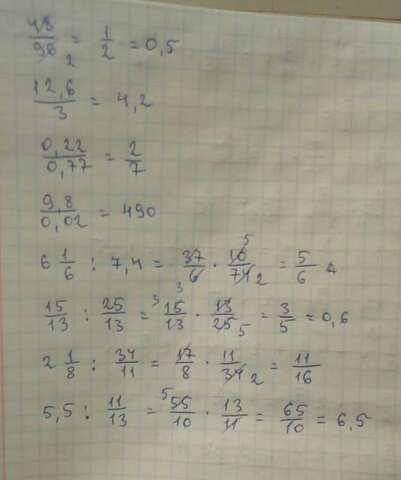 48/98 2 = 1/2 = 0,5
12,6/3 = 4,2
0,22/0,77 = 2/7
9,8/0,02 = 490
6 1/6 : 7,4 = 37/6 3 · 10 5/74 2 = 5/6
15/13 : 25/13 = 3 15/13 · 13/25 5 = 3/5 = 0,6
2 1/8 : 34/11 = 17/8 · 11/34 2 = 11/16
5,5 : 11/13 = 5 55/10 · 13/11 = 65/10 = 6,5